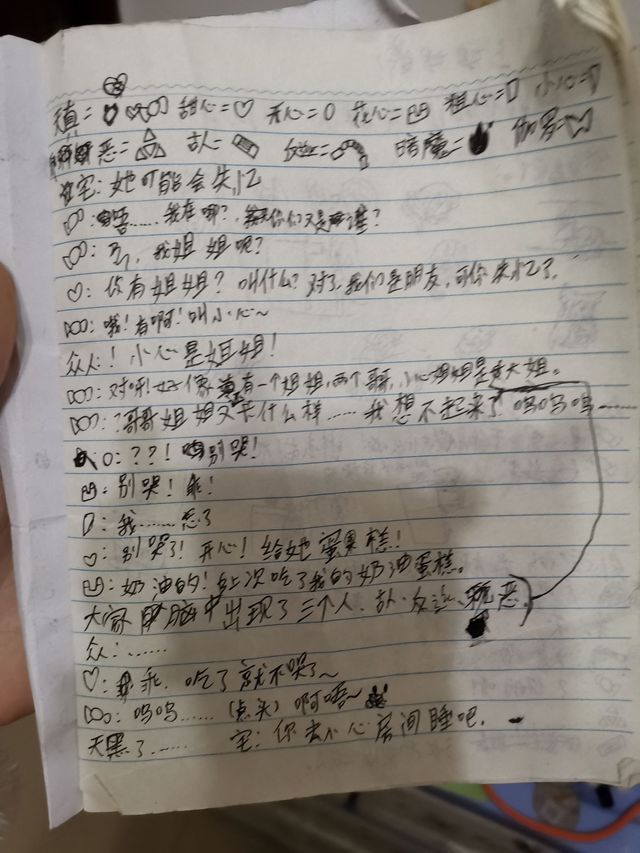 天真= 甜心= 开心= 花心= 粗心= 小心=
恶= 暗魔=
宅:她可能会失忆
:唔……我在哪?你们又是谁?
:我姐姐呢?
♡:你有姐姐?叫什么?对了,我们是朋友,可你失忆了,
:哦!有啊!叫小心~
众人:!小心是姐姐!
:对呀!好像有一个姐姐,两个哥哥,小心姐姐是大姐。
:?哥哥姐姐又长什么样……我想不起来了呜呜呜……
O:??!别哭!
:别哭!乖!
:我……忘了
♡:别哭了!开心!给她蛋果糕!
:奶油的!上次吃了我的奶油蛋糕。
大家脑中出现了三个人. 恶
众:……
♡:乖.吃了就不哭了~
:呜呜……(点头)啊唔~
天黑了…… 宅:你去小心房间睡吧.